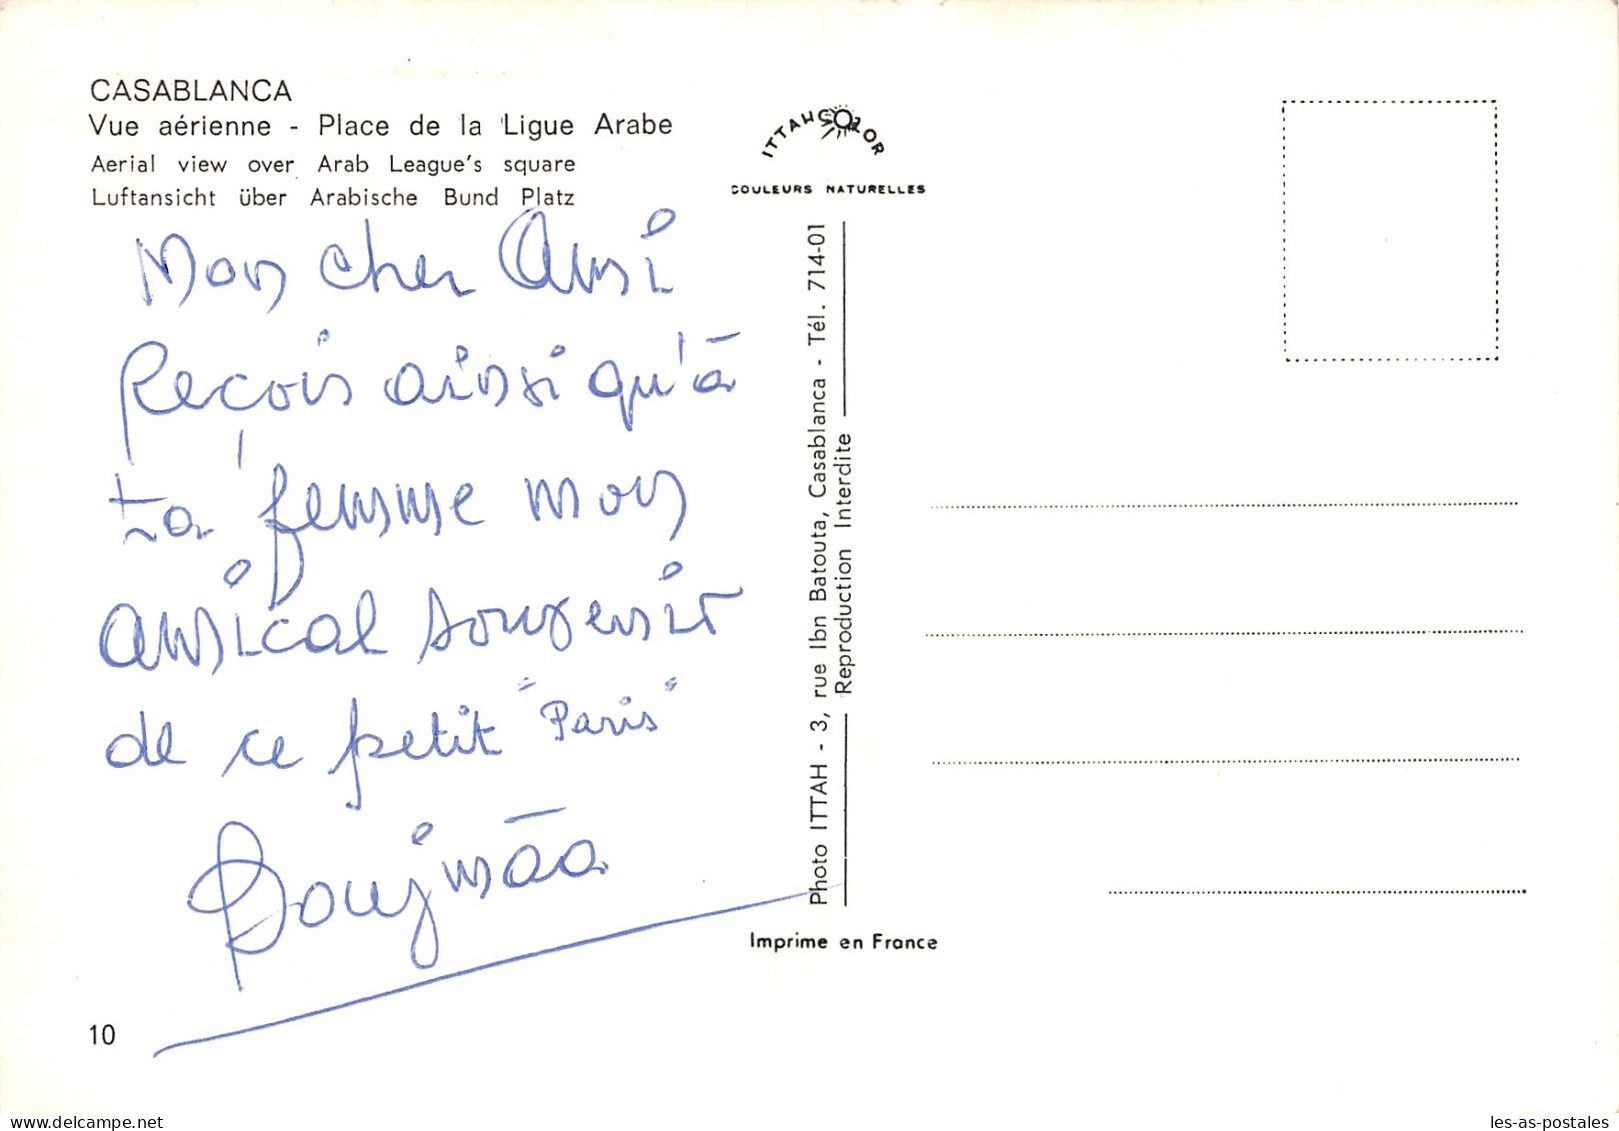 CASABLANCA
Vue aérienne - Place de la Ligue Arabe
Aerial view over Arab League's square
Luftansicht über Arabische Bund Platz
Mon cher Ami
Reçois ainsi qu'à
ta femme mon
amical souvenir
de ce petit "Paris"
Boujmāa
10
ITTAHCOLOR
COULEURS NATURELLES
Photo ITTAH - 3, rue Ibn Batouta, Casablanca - Tél. 714-01
Reproduction Interdite
Imprime en France
delcampe.net
les-as-postales